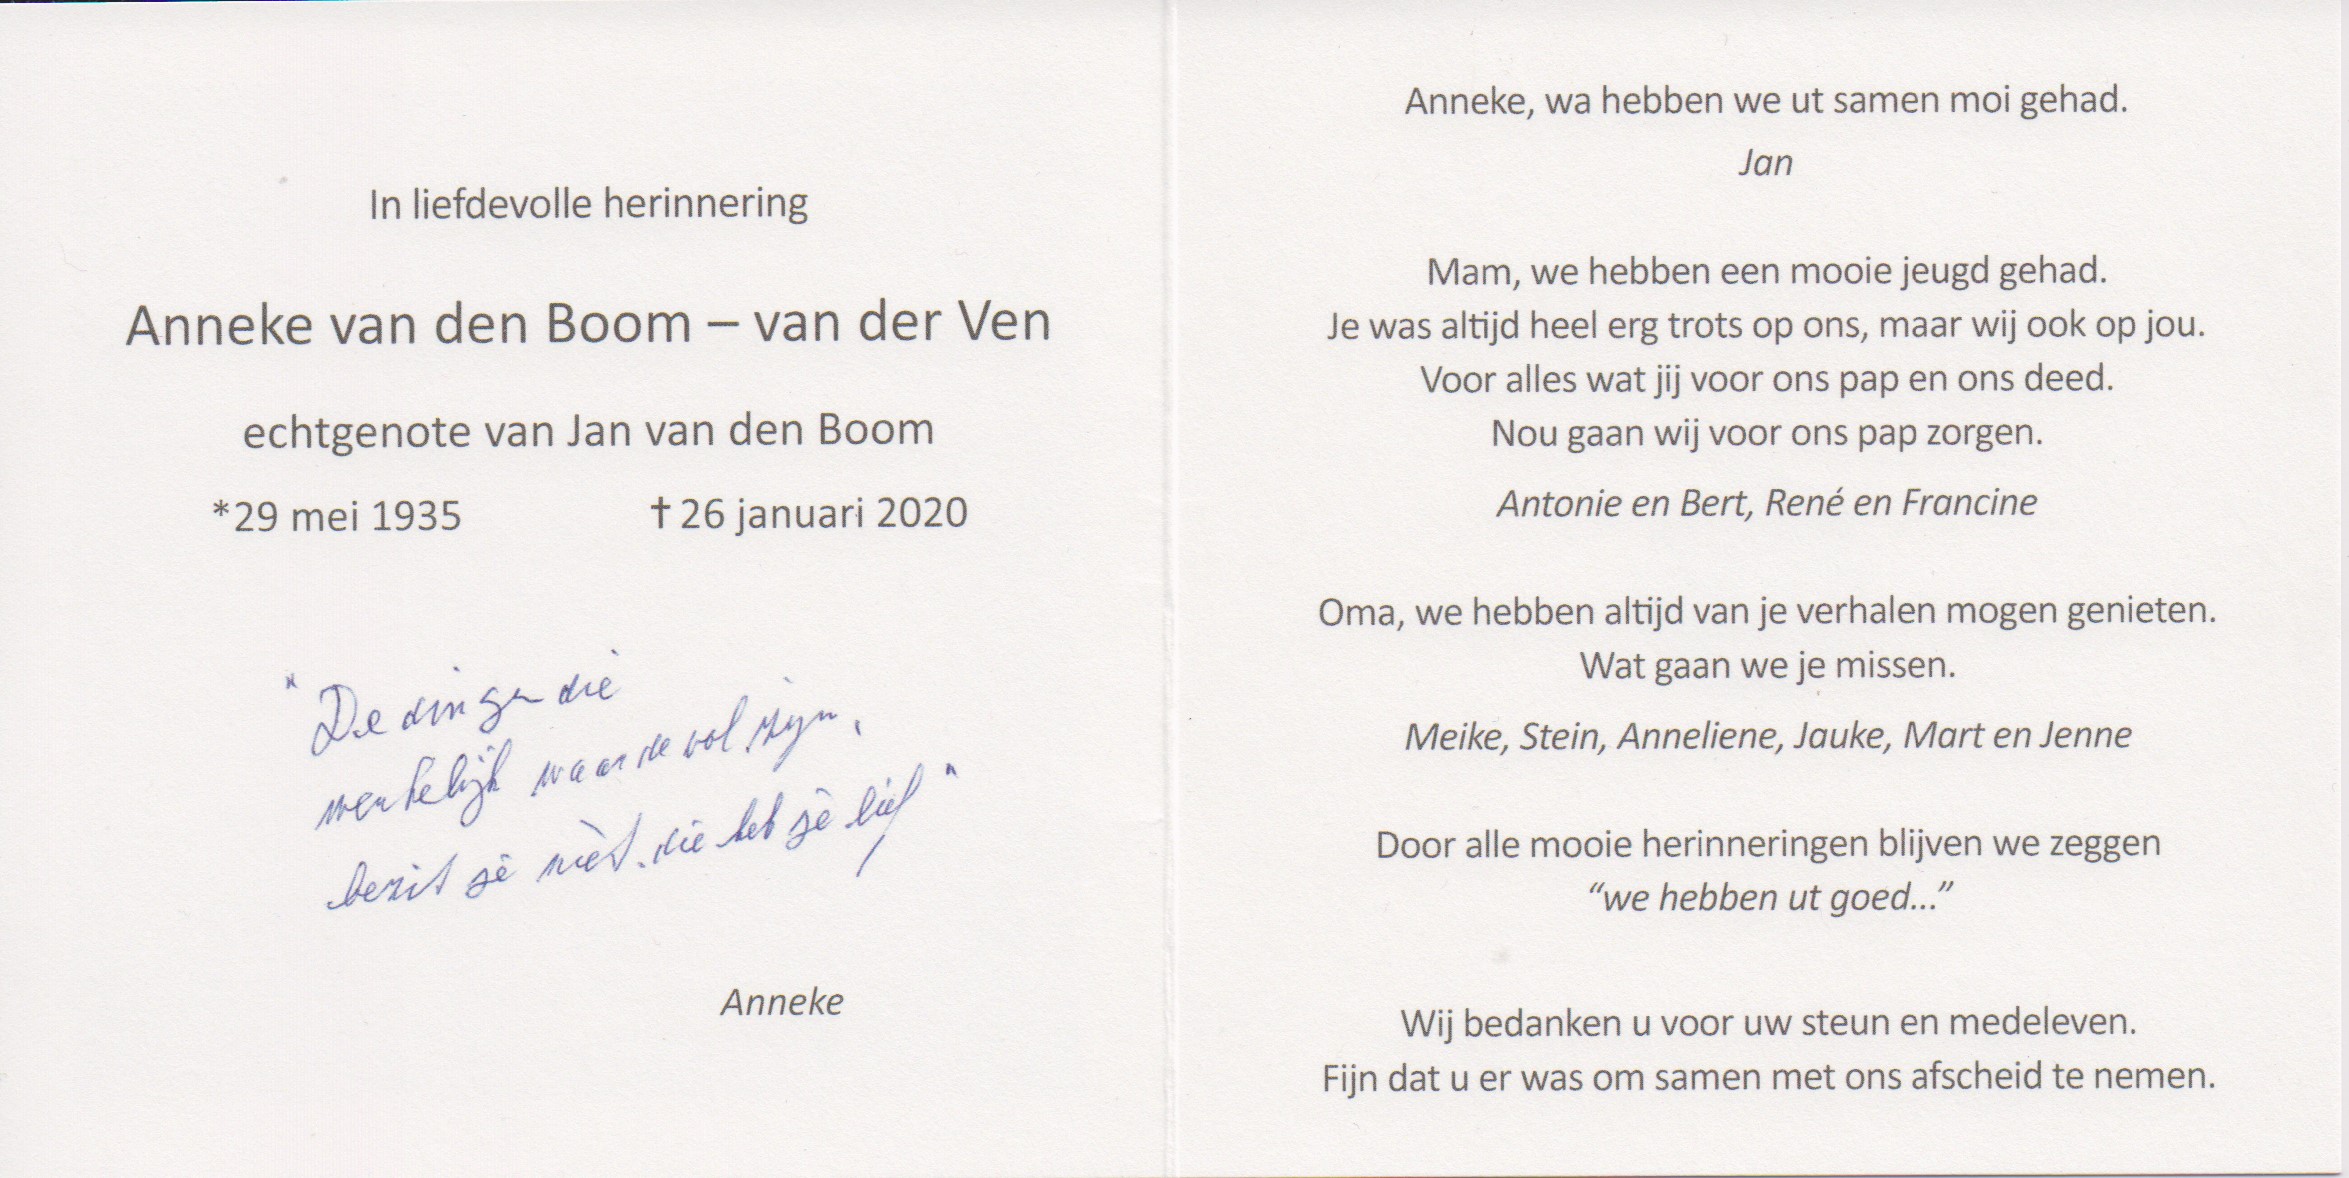 In liefdevolle herinnering
Anneke van den Boom – van der Ven
echtgenote van Jan van den Boom
*29 mei 1935 †26 januari 2020
"De dingen die
werkelijk waardevol zijn,
bezit je niet. die heb je lief"
Anneke
Anneke, wa hebben we ut samen moi gehad.
Jan
Mam, we hebben een mooie jeugd gehad.
Je was altijd heel erg trots op ons, maar wij ook op jou.
Voor alles wat jij voor ons pap en ons deed.
Nou gaan wij voor ons pap zorgen.
Antonie en Bert, René en Francine
Oma, we hebben altijd van je verhalen mogen genieten.
Wat gaan we je missen.
Meike, Stein, Anneliene, Jauke, Mart en Jenne
Door alle mooie herinneringen blijven we zeggen
“we hebben ut goed...”
Wij bedanken u voor uw steun en medeleven.
Fijn dat u er was om samen met ons afscheid te nemen.